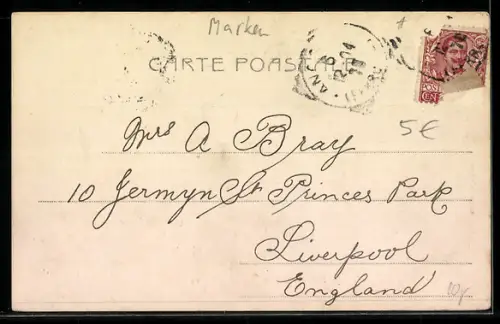 Marken
CARTE POASTALE
5€
Mrs A Bray
10 Jermyn St Princes Park
Liverpool
England